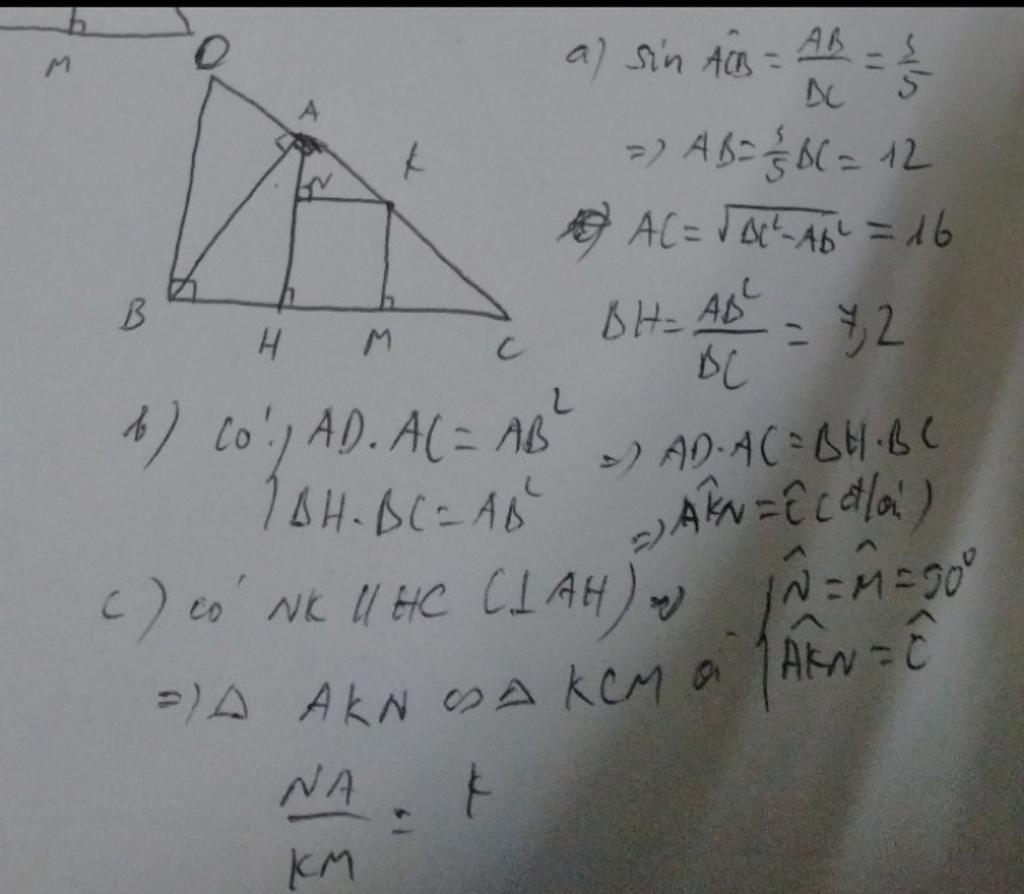 M
D
A
N
K
B
H
M
C
a) sin ACB = AB/BC = 3/5
=> AB = 3/5 BC = 12
AC = √BC² - AB² = 16
BH = AB²/BC = 7,2
b) có: AD.AC = AB² => AD.AC = BH.BC
BH.BC = AB²
=> AKN = C (đ/vị)
c) có NK // HC (⊥ AH)
N = M = 90°
AKN = C
=> Δ AKN ∽ Δ KCM vì
NA/KM = K